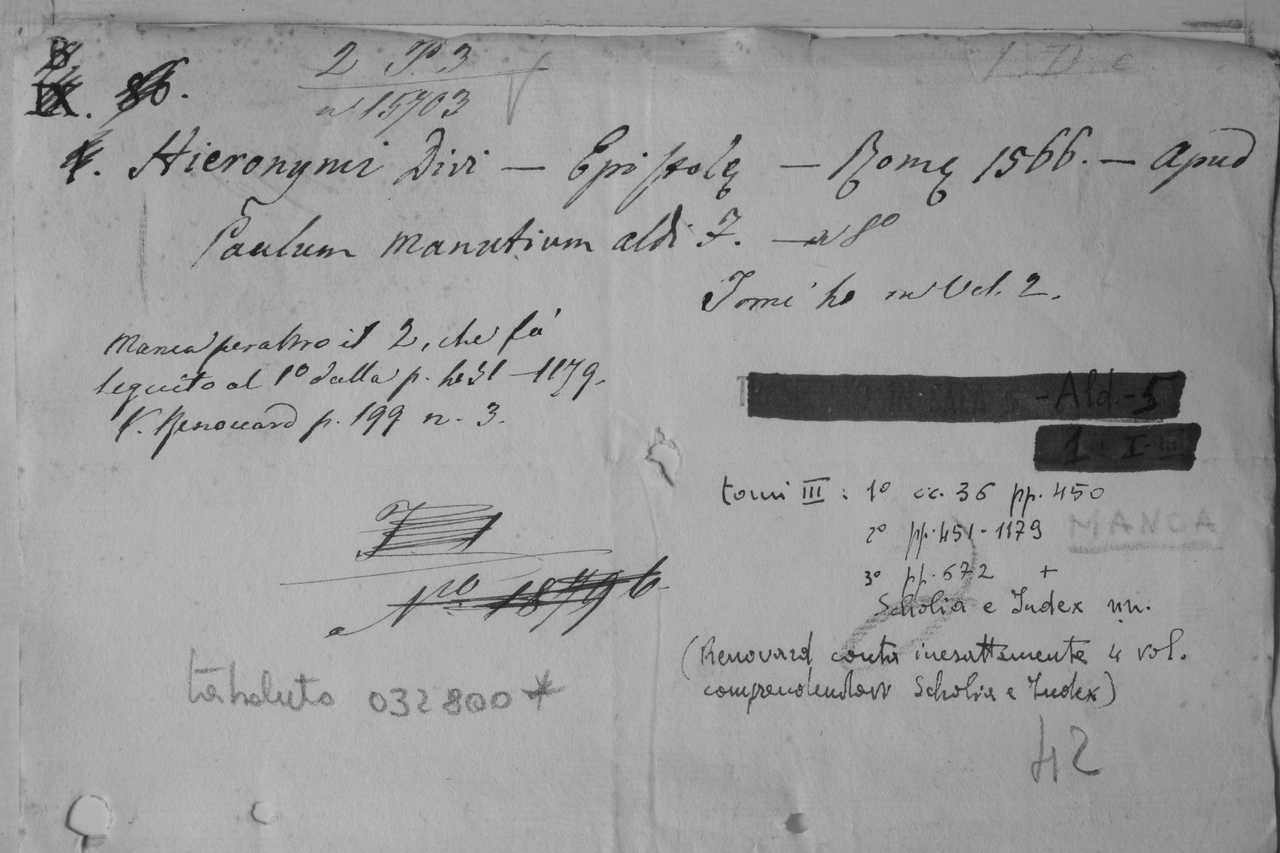 B.
IX. 86.
2 P. 3
n 15703
1. Hieronymi Divi — Epistolę — Romę 1566. — Apud
Paulum Manutium Aldi F. — in 8º
Tomi in Vol. 2.
Manca peraltro il 2, che fa
seguito al 1º dalla p. 451 — 1179.
V. Renouard p. 199 n. 3.
- Ald. - 5
1 I - III
tomi III : 1º cc. 36 pp. 450
2º pp. 451-1179
MANCA
3º pp. 672 +
Scholia e Index nn.
Nº 18796.
(Renouard conta inesattamente 4 vol.
comprendendovi Scholia e Index)
032800 *
42